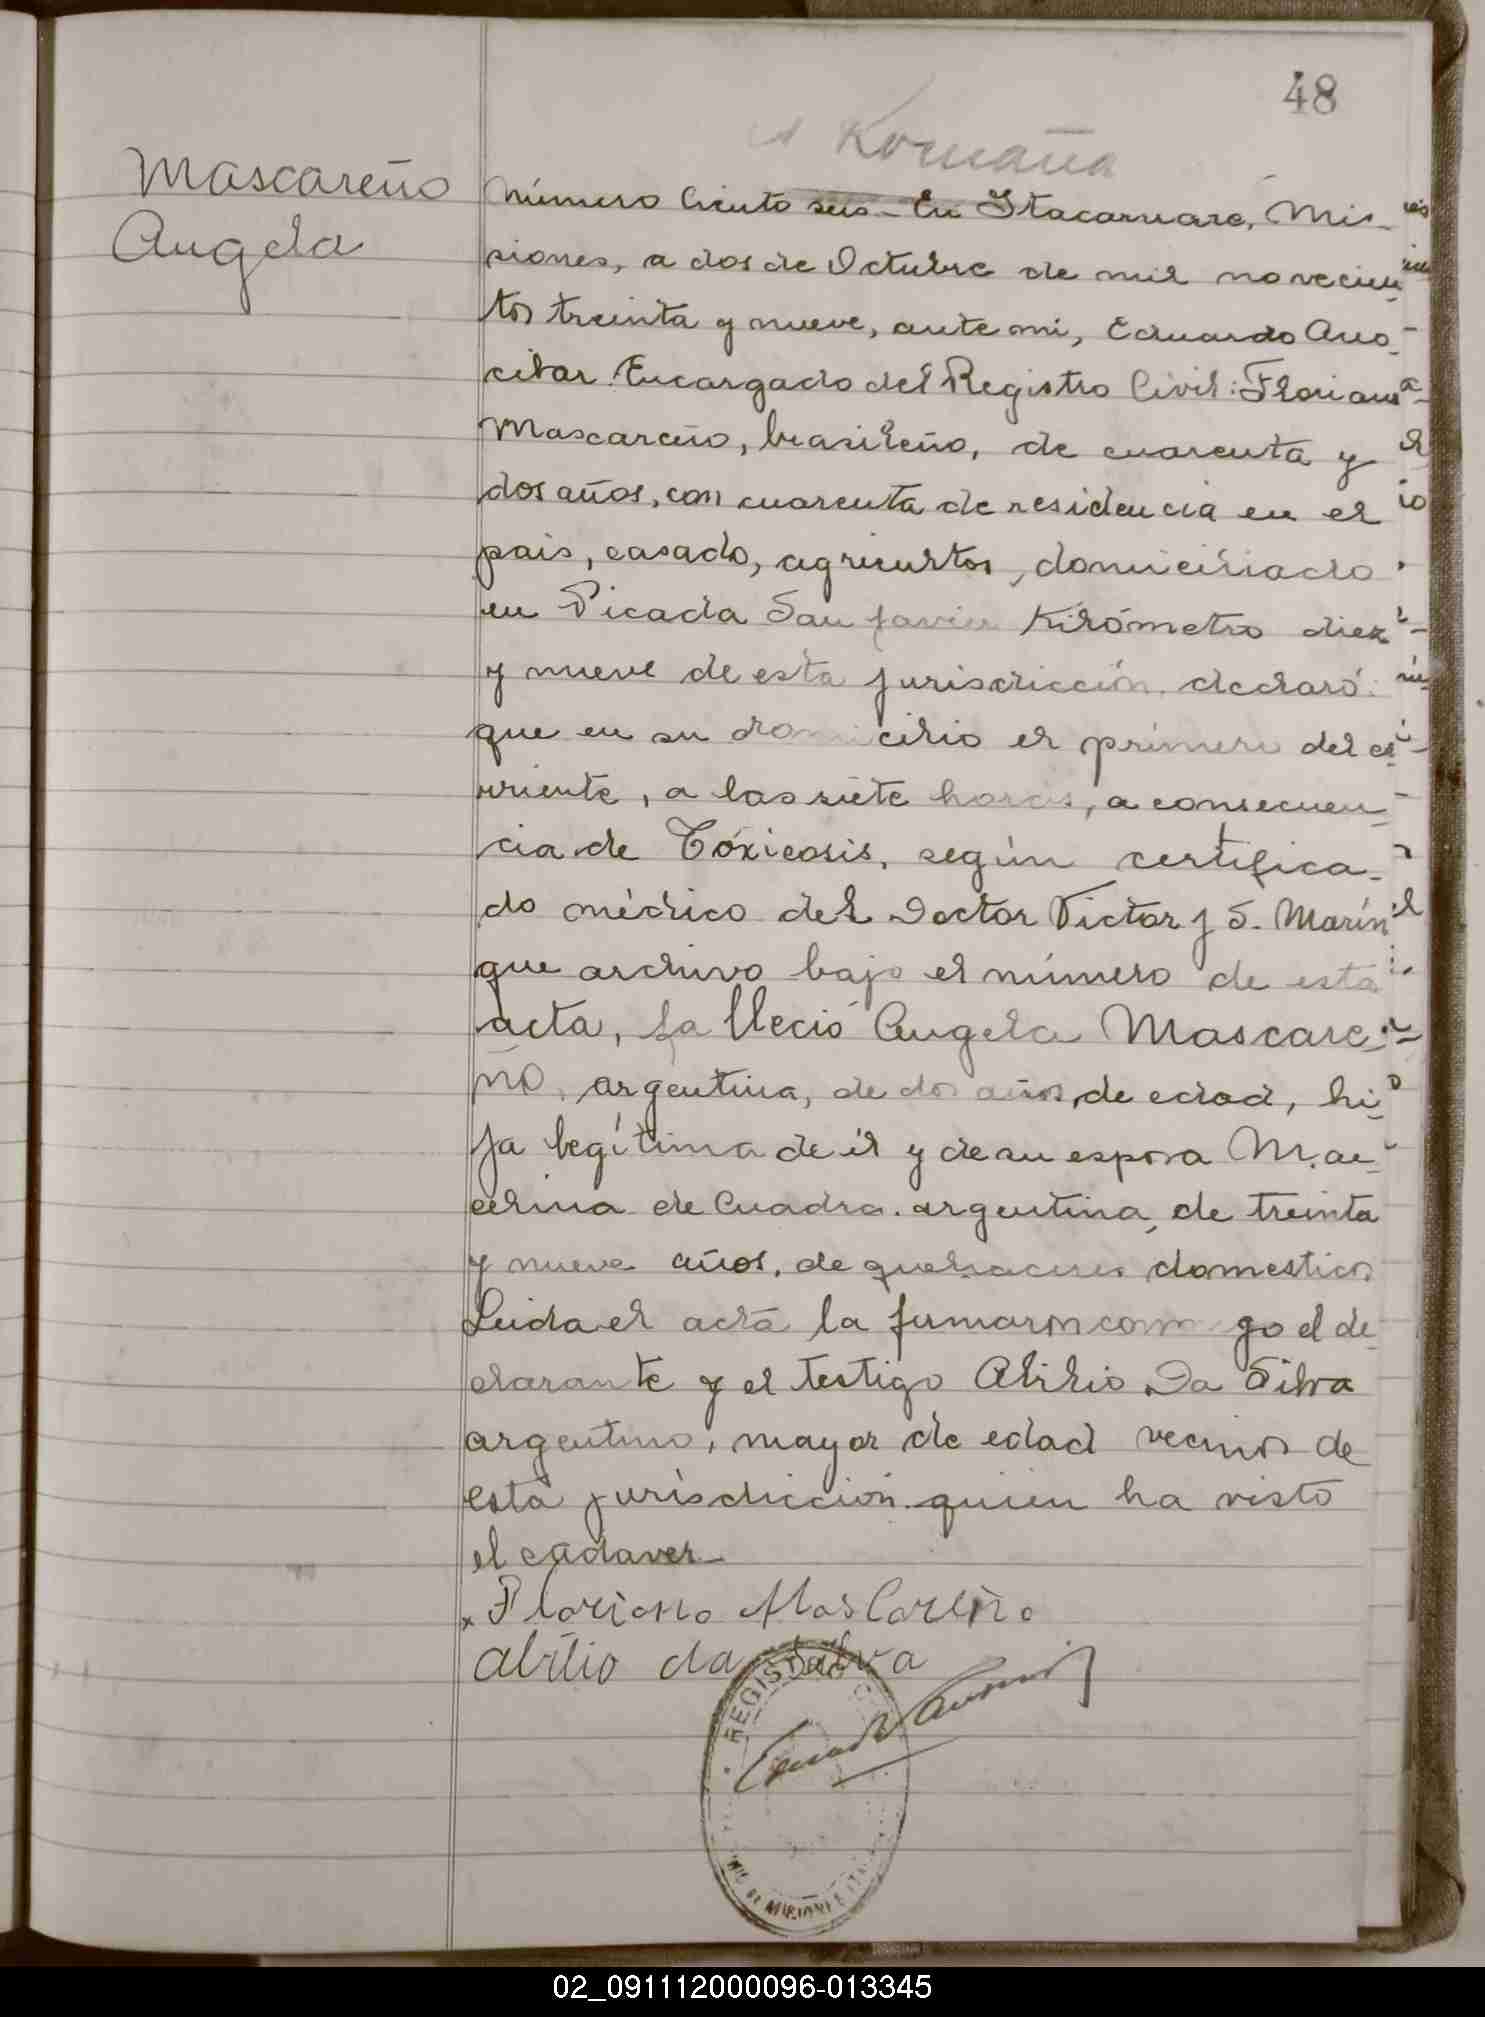 48
Mascareño
Angela
Número Ciento seis - En Itacaruare, Mi-
siones, a dos de Octubre de mil novecien-
tos treinta y nueve, ante mi, Eduardo
Encargado del Registro Civil: Floriano
Mascareño, brasileño, de cuarenta y
dos años, con cuarenta de residencia en el
pais, casado, agricultor, domiciliado
en Picada San Javier Kilómetro diez
y nueve de esta jurisdicción, declaró:
que en su domicilio el primero del co-
rriente, a las siete horas, a consecuen-
cia de Tóxicosis, según certifica-
do médico del Doctor Victor J S. Marín
que archivo bajo el número de esta
acta, falleció Angela Mascare-
ño, argentina, de dos años, de edad, hi-
ja legítima de él y de su esposa
de Cuadra. argentina, de treinta
y nueve años, de quehaceres domesticos
Leida el acta la firmaron conmigo el de-
clarante y el testigo Abilio Da Silva
argentino, mayor de edad vecinos de
esta jurisdicción quien ha visto
el cadaver
x Floriano Mascareño
abilio da silva
REGISTRO
02_091112000096-013345